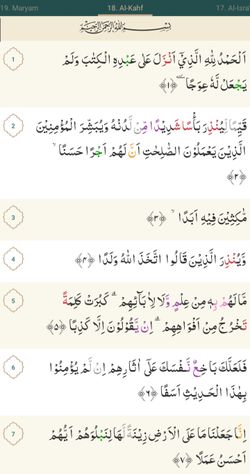 19. Maryam 18. Al-Kahf 17. Al-Isra
بِسْمِ اللّٰهِ الرَّحْمٰنِ الرَّحِيْمِ
1
اَلْحَمْدُ لِلّٰهِ الَّذِيْٓ اَنْزَلَ عَلٰى عَبْدِهِ الْكِتٰبَ وَلَمْ
يَجْعَلْ لَّهٗ عِوَجًا ۜ ﴿١﴾
2
قَيِّمًا لِّيُنْذِرَ بَأْسًا شَدِيْدًا مِّنْ لَّدُنْهُ وَيُبَشِّرَ الْمُؤْمِنِيْنَ
الَّذِيْنَ يَعْمَلُوْنَ الصّٰلِحٰتِ اَنَّ لَهُمْ اَجْرًا حَسَنًا ۙ
﴿٢﴾
3
مَّاكِثِيْنَ فِيْهِ اَبَدًا ۙ ﴿٣﴾
4
وَّيُنْذِرَ الَّذِيْنَ قَالُوا اتَّخَذَ اللّٰهُ وَلَدًا ﴿٤﴾
5
مَا لَهُمْ بِهٖ مِنْ عِلْمٍ وَّلَا لِاٰبَاۤىِٕهِمْ ۗ كَبُرَتْ كَلِمَةً
تَخْرُجُ مِنْ اَفْوَاهِهِمْ ۗ اِنْ يَّقُوْلُوْنَ اِلَّا كَذِبًا ﴿٥﴾
6
فَلَعَلَّكَ بَاخِعٌ نَّفْسَكَ عَلٰٓى اٰثَارِهِمْ اِنْ لَّمْ يُؤْمِنُوْا
بِهٰذَا الْحَدِيْثِ اَسَفًا ﴿٦﴾
7
اِنَّا جَعَلْنَا مَا عَلَى الْاَرْضِ زِيْنَةً لَّهَا لِنَبْلُوَهُمْ اَيُّهُمْ
اَحْسَنُ عَمَلًا ﴿٧﴾